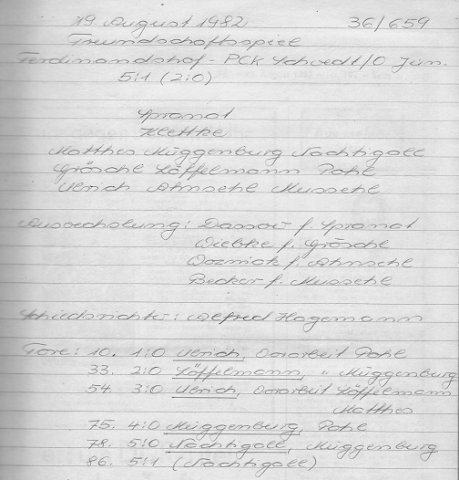 19 August 1982 36/659
Freundschaftsspiel
Ferdinandshof - PCK Schwedt/O Jun.
5:1 (2:0)
Spranat
Klettke
Matthes Müggenburg Nachtigall
Gröschl Löffelmann Pohl
Ulrich Ahnsehl Mussehl
Auswechslung: Dassow f. Spranat
Wiebke f. Gröschl
f. Ahnsehl
Becker f. Mussehl
Schiedsrichter: Alfred Hagemann
Tore: 10. 1:0 Ulrich, Vorarbeit Pohl
33. 2:0 Löffelmann, " Müggenburg
54. 3:0 Ulrich, Vorarbeit Löffelmann
Matthes
75. 4:0 Müggenburg, Pohl
78. 5:0 Nachtigall, Müggenburg
86. 5:1 (Nachtigall)